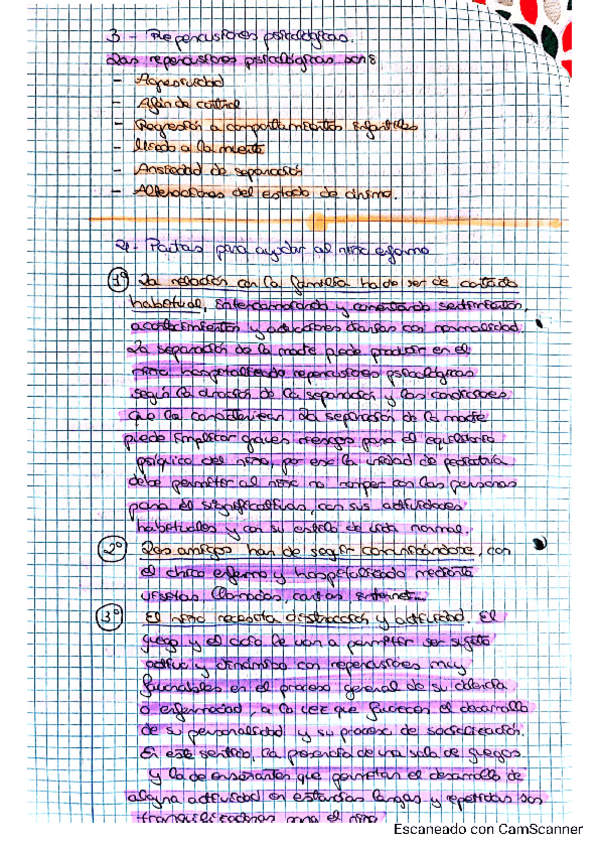 3 - Repercusiones psicológicas.
Las repercusiones psicológicas son:
- Agresividad
- Afán de control
- Regresión a comportamientos infantiles
- Miedo a la muerte
- Ansiedad de separación
- Alteraciones del estado de ánimo.
4. Pautas para ayudar al niño enfermo
1º La relación con la familia ha de ser de contacto
habitual, intercambiando y conectando sentimientos,
acontecimientos y actuaciones diarias con normalidad.
La separación de la madre puede producir en el
niño hospitalizado repercusiones psicológicas
según la duración de la separación y las condiciones
que la caracterizan. La separación de la madre
puede implicar graves riesgos para el equilibrio
psíquico del niño, por eso la unidad de pediatría
debe permitir al niño no romper con las personas
para él significativas, con sus actividades
habituales y con su estilo de vida normal.
2º Los amigos han de seguir comunicándose, con
el chico enfermo y hospitalizado mediante
visitas, llamadas, cartas, internet...
3º El niño necesita distracción y actividad. El
juego y el ocio le van a permitir ser sujeto
activo y dinámico con repercusiones muy
favorables en el proceso general de su dolencia
o enfermedad, a la vez que favorecen el desarrollo
de su personalidad y su proceso de socialización.
En este sentido, la presencia de una sala de juegos
y la de enseñantes que permitan el desarrollo de
alguna actividad en estancias largas y repetidas son
tranquilizadoras para el niño
Escaneado con CamScanner